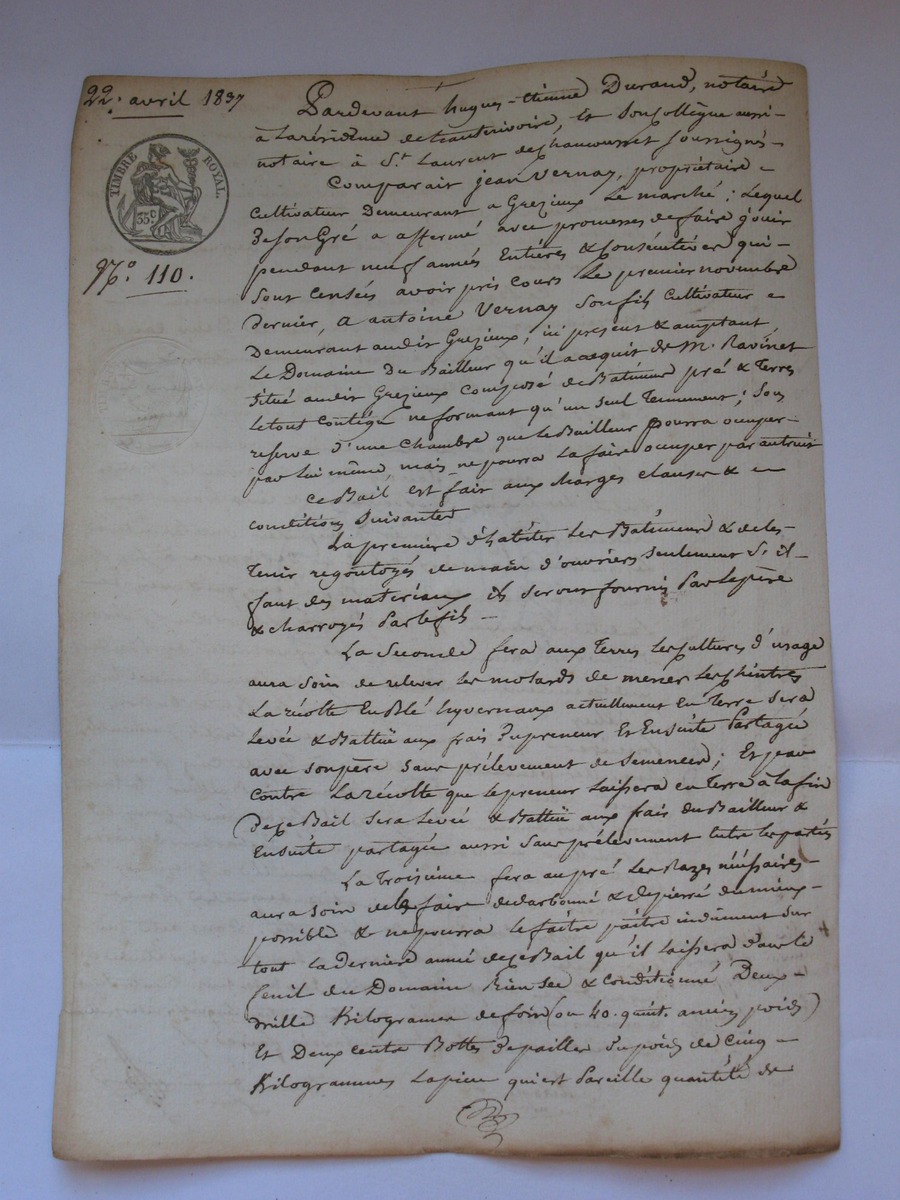 22. avril 1837
TIMBRE ROYAL.
35 c
N.º 110.
Pardevant hugues-étienne Durand, notaire
à La résidence de Chanterivoire, et Son Collègue aussi
notaire à St. Laurent de Chamousset Soussignés
Comparait jean Vernay, propriétaire
Cultivateur Demeurant a Grezieux Le marché; Lequel
De Son Gré a affermé avec promesses de faire jouir
pendant neuf années Entières & Consécutives qui
Sont Censées avoir pris Cours Le premier novembre
Dernier, A antoine Vernay Son fils Cultivateur
Demeurant audit Grezieux, ici présent & acceptant
Le Domaine Du Bailleur qu'il a acquit de M. Ravinet
Situé audit Grezieux Composé de Batiments pré & Terres
Le tout Contigu ne formant qu'un Seul Tenement; Sous
reserve d'une Chambre que Le Bailleur pourra occuper
par Lui même mais ne pourra La faire occuper par autruit
Ce Bail est fait aux charges clauses &
conditions Suivantes
La première d'habiter Les Batiments & de les
Tenir regoutoyés de main d'ouvriers Seulement S'il
faut des materiaux ils Seront fournis Par Le père
& charroyés Par le fils
La Seconde fera aux Terres Les Cultures d'usage
aura Soin de relever Les motards de mener Les Chintres
La récolte En Blé hyvernaux actuellement En Terre Sera
Levée & Battue aux frais Du preneur Et Ensuite Partagée
avec Son père Sans prélevement de Semences; Et par
Contre La récolte que Le preneur Laissera en Terre à La fin
De ce Bail Sera Levée & Battue aux frais Du Bailleur &
Ensuite partagée aussi Sans prélevement Entre Les parties
La Troisieme fera au pré Les Razes nécessaires
aura Soin de le faire dedarbonné & depierré du mieux
possible & ne pourra Le faire paître indûment Sur
tout La Dernière année de ce Bail qu'il Laissera dans Le
fenil du Domaine Bien Sec & Conditionné Deux
Mille Kilogrammes de foin (ou 40. quint. anciens poids)
Et Deux Cents Bottes De pailles Du poids de Cinq
Kilogrammes La piece qui est Pareille quantité de